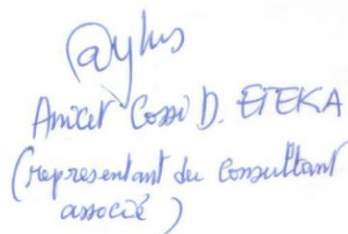 Anicet Cossi D. ETEKA
(représentant du consultant
associé)